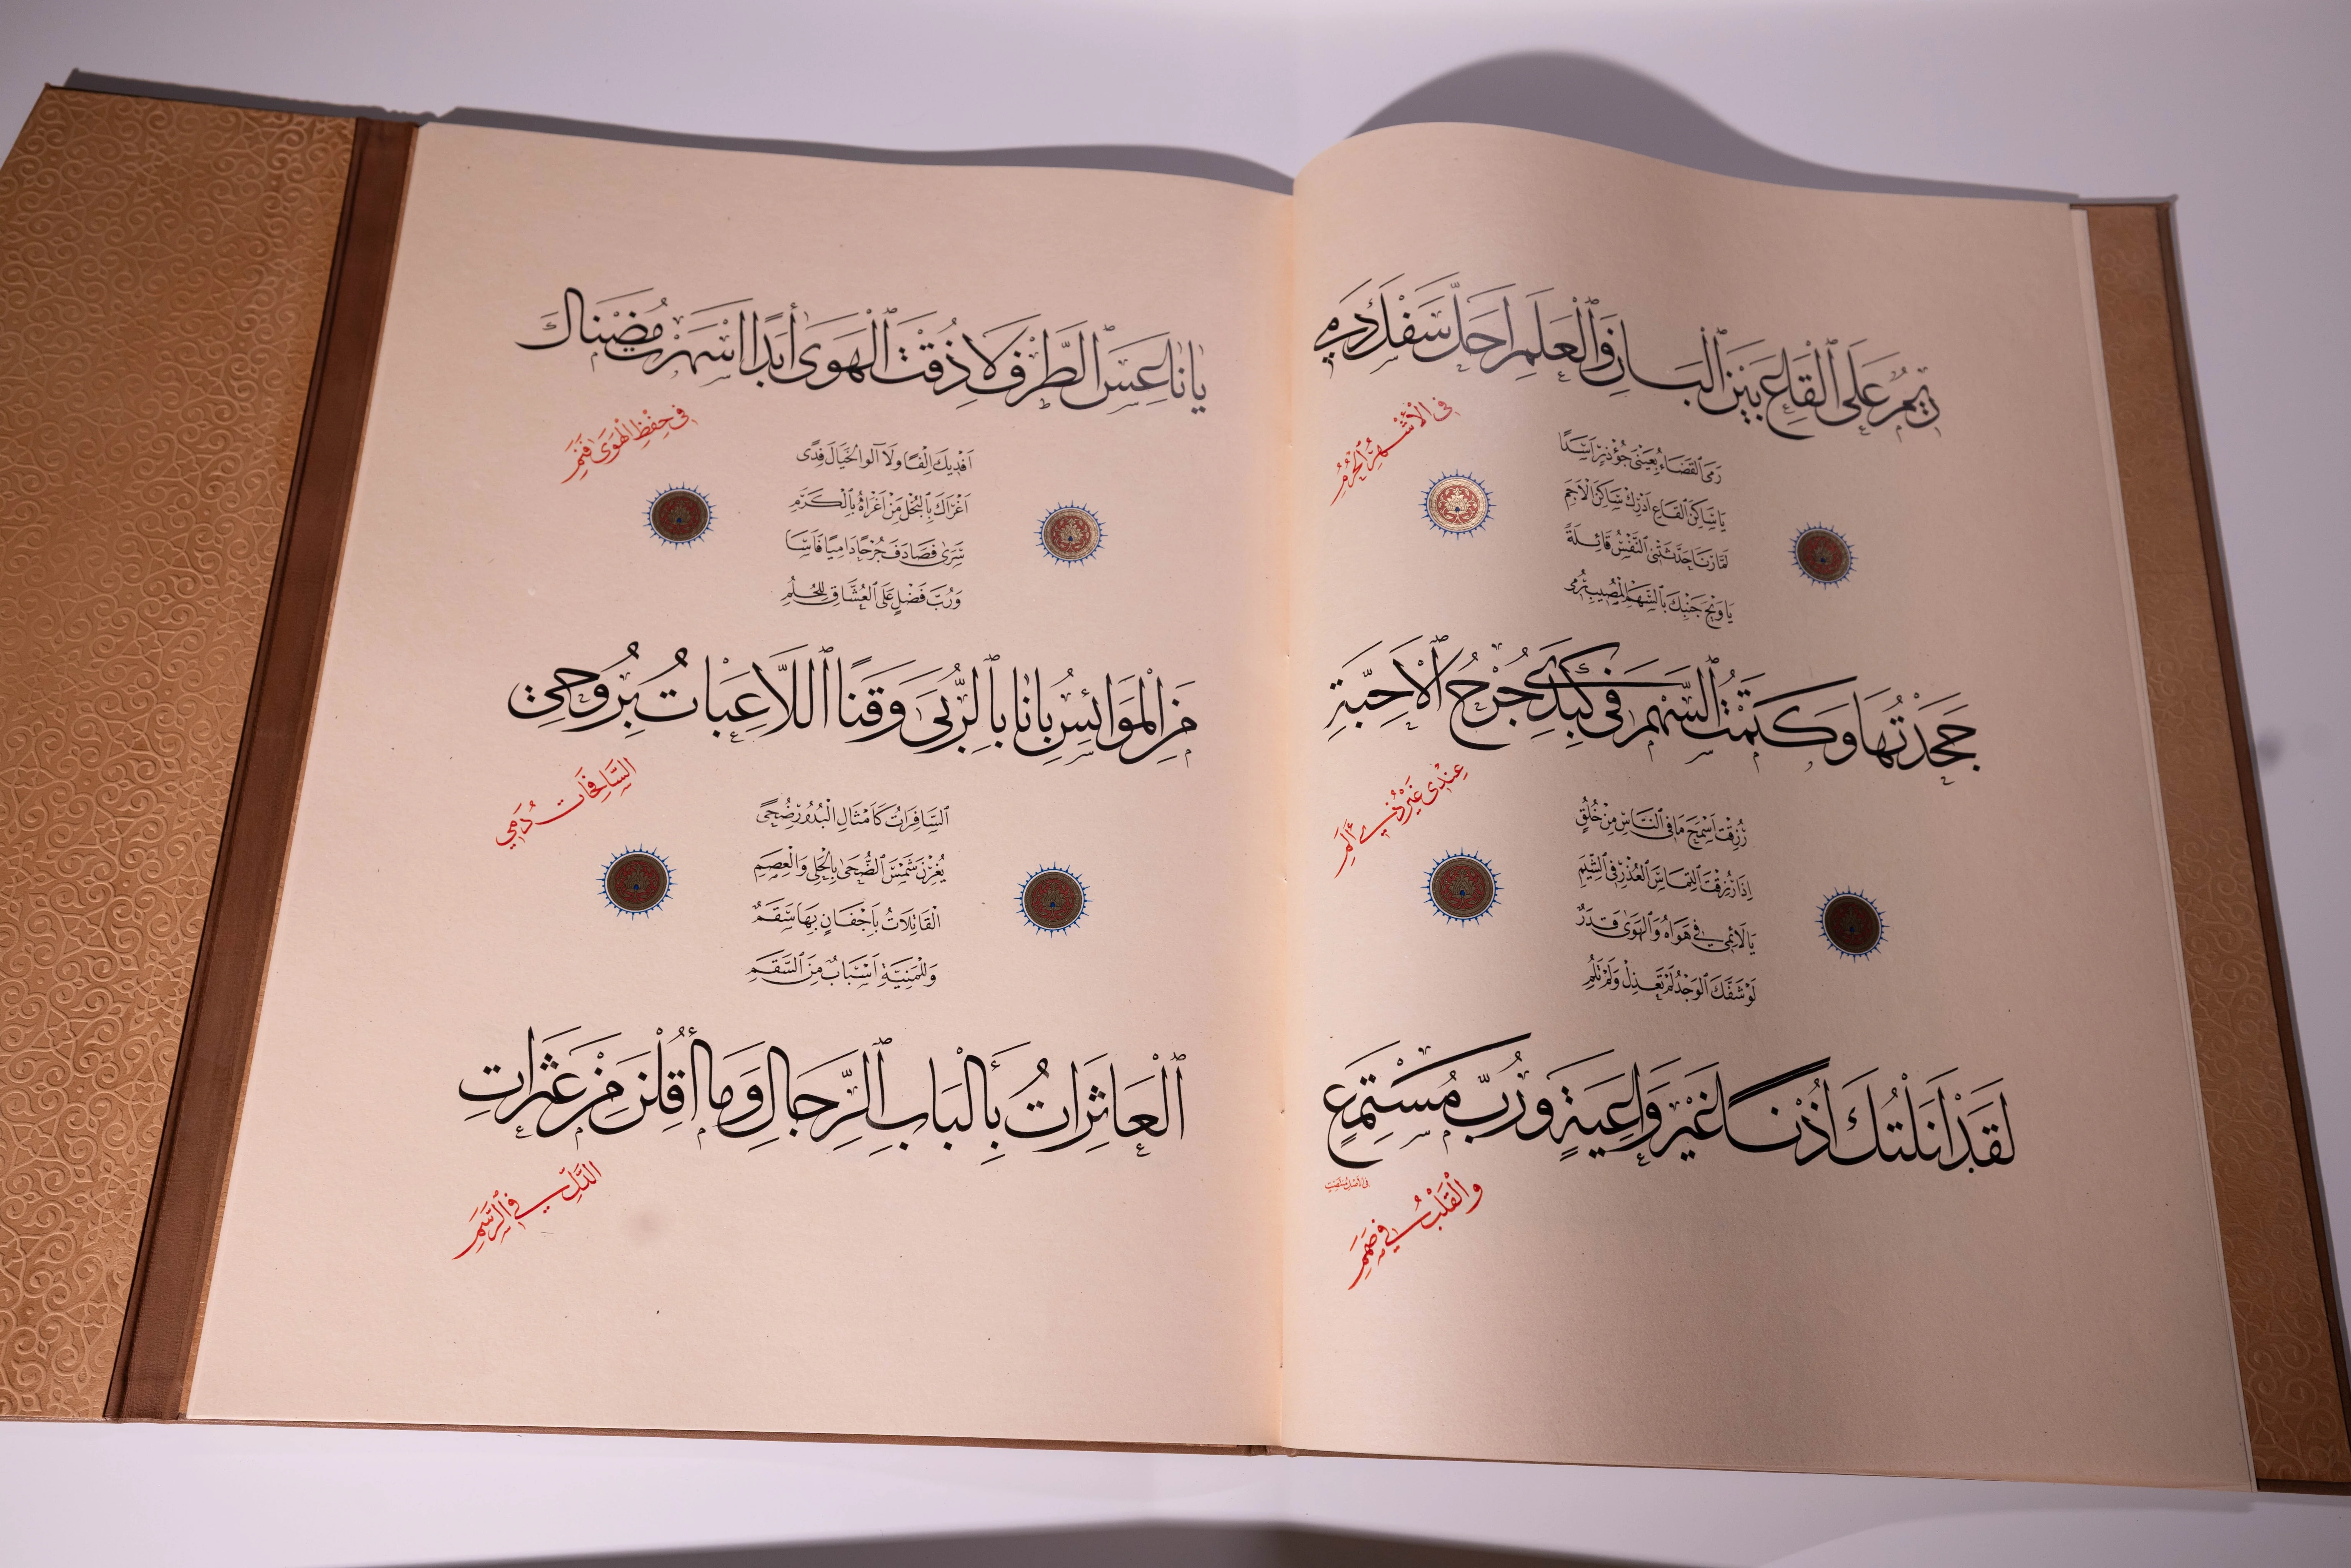 رِيمٌ عَلَى الْقَاعِ بَيْنَ الْبَانِ وَالْعَلَمِ أَحَلَّ سَفْكَ دَمِي
فِي الْأَشْهُرِ الْحُرُمِ
رَمَى الْقَضَاءُ بِعَيْنَيْ جُؤْذَرٍ أَسَدًا
يَا سَاكِنَ الْقَاعِ أَدْرِكْ سَاكِنَ الْأَجَمِ
لَمَّا رَنَا حَدَّثَتْنِي النَّفْسُ قَائِلَةً
يَا وَيْحَ جَنْبِكَ بِالسَّهْمِ الْمُصِيبِ رُمِي
جَحَدْتُهَا وَكَتَمْتُ السَّهْمَ فِي كَبِدِي جُرْحُ الْأَحِبَّةِ
عِنْدِي غَيْرُ ذِي أَلَمِ
رُزِقْتَ أَسْمَحَ مَا فِي النَّاسِ مِنْ خُلُقٍ
إِذَا رُزِقْتَ الْتِمَاسَ الْعُذْرِ فِي الشِّيَمِ
يَا لَائِمِي فِي هَوَاهُ وَالْهَوَى قَدَرٌ
لَوْ شَفَّكَ الْوَجْدُ لَمْ تَعْذِلْ وَلَمْ تَلُمِ
لَقَدْ أَنَلْتُكَ أُذْنًا غَيْرَ وَاعِيَةٍ وَرُبَّ مُسْتَمِعٍ
وَالْقَلْبُ فِي صَمَمِ
يَا نَاعِسَ الطَّرْفِ لَا ذُقْتَ الْهَوَى أَبَدًا أَسْهَرْتَ مُضْنَاكَ
فِي حِفْظِ الْهَوَى فَنَمِ
أَفْدِيكَ إِلْفًا وَلَا آلُو الْخَيَالَ فِدًى
أَغْرَاكَ بِالْبُخْلِ مَنْ أَغْرَاهُ بِالْكَرَمِ
سَرَى فَصَادَفَ جُرْحًا دَامِيًا فَأَسَا
وَرُبَّ فَضْلٍ عَلَى الْعُشَّاقِ لِلْحُلُمِ
مَنِ الْمَوَائِسُ بَانًا بِالرُّبَى وَقَنًا اللَّاعِبَاتُ بِرُوحِي
السَّافِحَاتُ دَمِي
السَّافِرَاتُ كَأَمْثَالِ الْبُدُورِ ضُحًى
يُغِرْنَ شَمْسَ الضُّحَى بِالْحَلْيِ وَالْعِصَمِ
الْقَاتِلَاتُ بِأَجْفَانٍ بِهَا سَقَمٌ
وَلِلْمَنِيَّةِ أَسْبَابٌ مِنَ السَّقَمِ
الْعَاثِرَاتُ بِأَلْبَابِ الرِّجَالِ وَمَا أُقِلْنَ مِنْ عَثَرَاتِ
الدَّلِّ فِي الرَّسَمِ